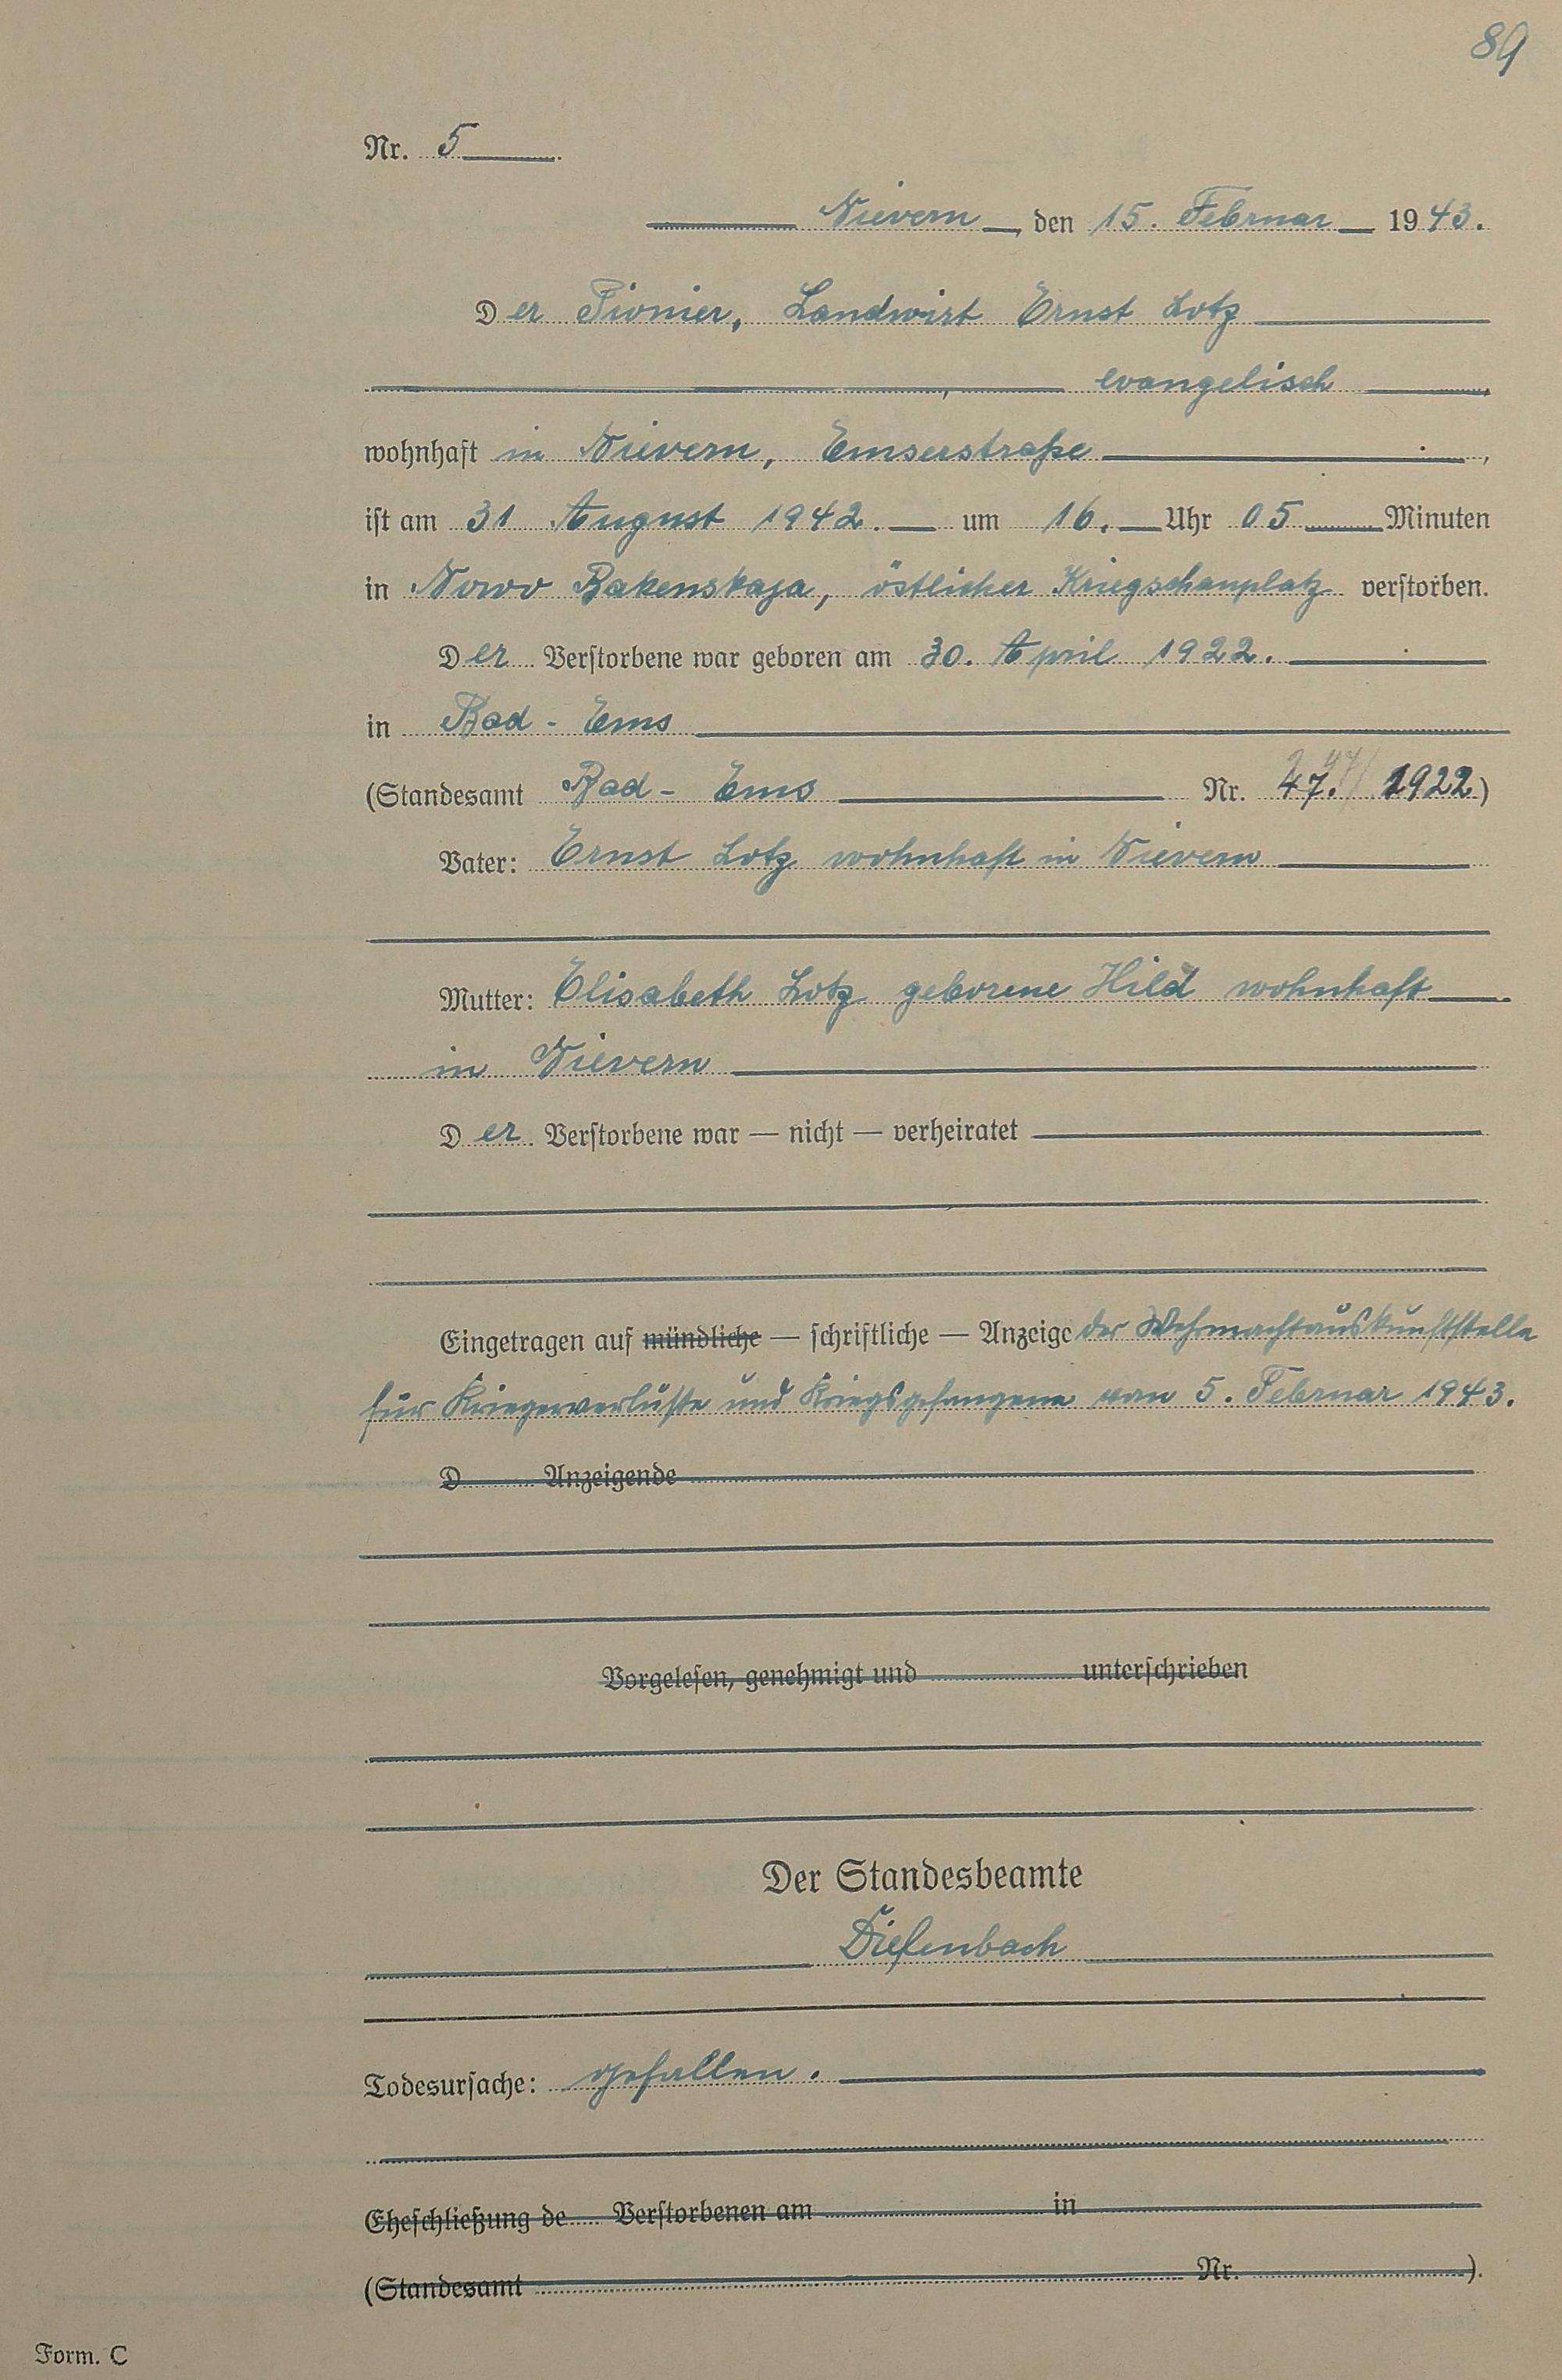 89
Nr. 5
Nievern, den 15. Februar 1943.
Der Pionier, Landwirt Ernst Lotz
, evangelisch,
wohnhaft in Nievern, Emserstraße,
ist am 31 August 1942. um 16. Uhr 05 Minuten
in Nowo Bakenskaja, östlicher Kriegschauplatz verstorben.
Der Verstorbene war geboren am 30. April 1922.
in Bad-Ems
(Standesamt Bad-Ems Nr. 47. / 1922)
Vater: Ernst Lotz wohnhaft in Nievern
Mutter: Elisabeth Lotz geborene Hild wohnhaft
in Nievern
Der Verstorbene war — nicht — verheiratet
Eingetragen auf mündliche — schriftliche — Anzeige der Wehrmachtauskunftstelle
für Kriegerverluste und Kriegsgefangene vom 5. Februar 1943.
D Anzeigende
Vorgelesen, genehmigt und unterschrieben
Der Standesbeamte
Diefenbach
Todesursache: gefallen.
Eheschließung de Verstorbenen am in
(Standesamt Nr. ).
Form. C